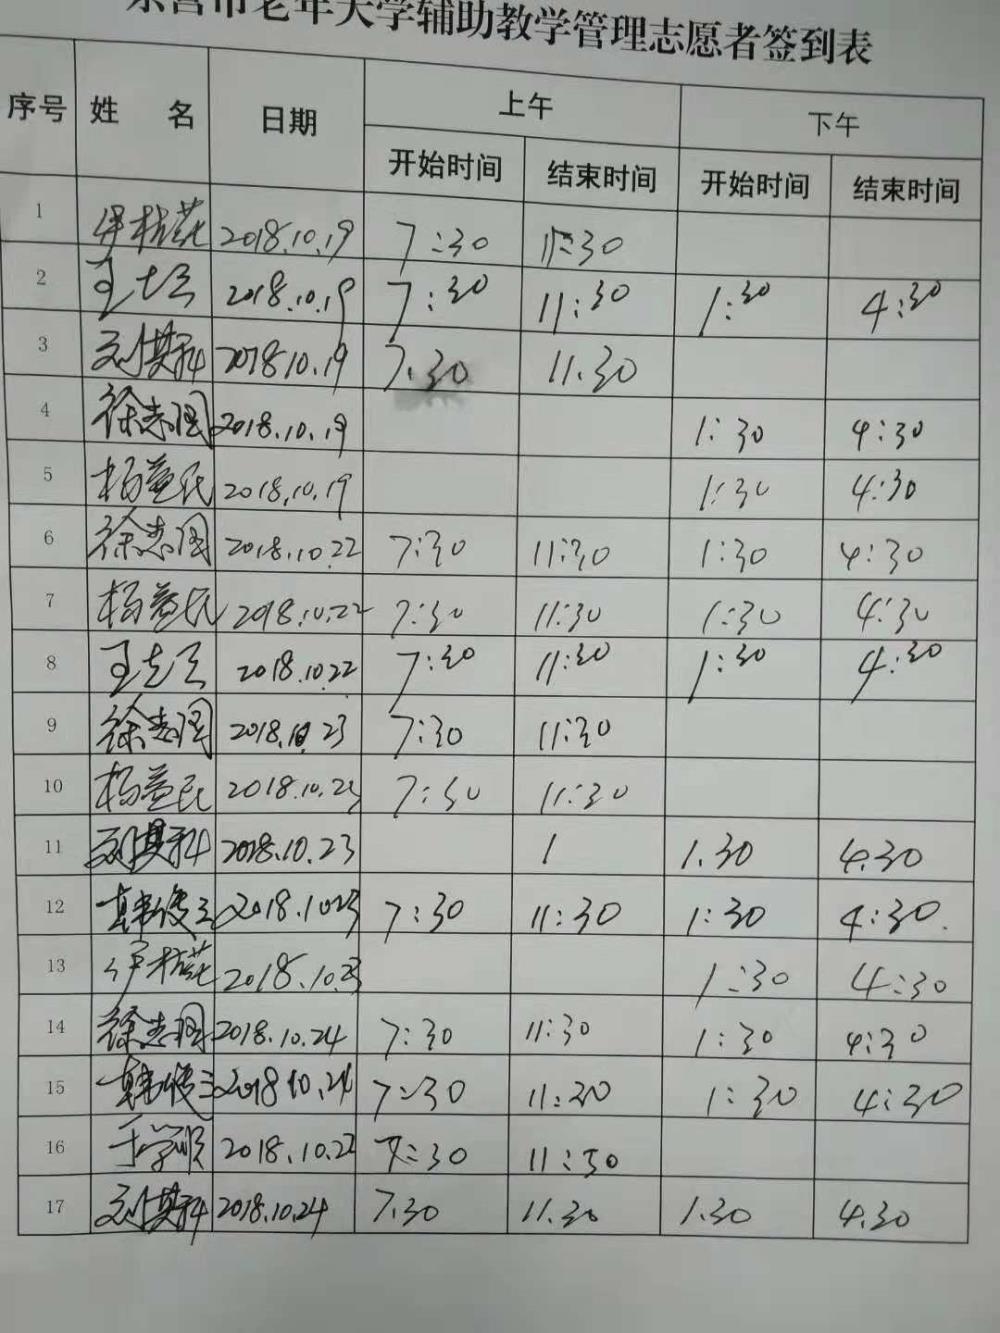 东营市老年大学辅助教学管理志愿者签到表
序号 姓 名 日期 上午 下午
开始时间 结束时间 开始时间 结束时间
1 2018.10.19 7:30 11:30
2 2018.10.19 7:30 11:30 1:30 4:30
3 刘其科 2018 10.19 7.30 11.30
4 徐志国 2018.10.19 1:30 4:30
5 杨益民 2018.10.19 1:30 4:30
6 徐志国 2018.10.22 7:30 11:30 1:30 4:30
7 杨益民 2018.10.22 7:30 11:30 1:30 4:30
8 2018.10.22 7:30 11:30 1:30 4:30
9 徐志国 2018.10.23 7:30 11:30
10 杨益民 2018.10.23 7:30 11:30
11 刘其科 2018.10.23 1 1.30 4.30
12 韩俊三 2018.10 23 7:30 11:30 1:30 4:30.
13 2018.10.23 1:30 4:30
14 徐志国 2018.10.24 7:30 11:30 1:30 4:30
15 韩俊三 2018 10.24 7:30 11:30 1:30 4:30
16 于学顺 2018.10.22 7:30 11:30
17 刘其科 2018.10.24 7.30 11.30 1.30 4.30